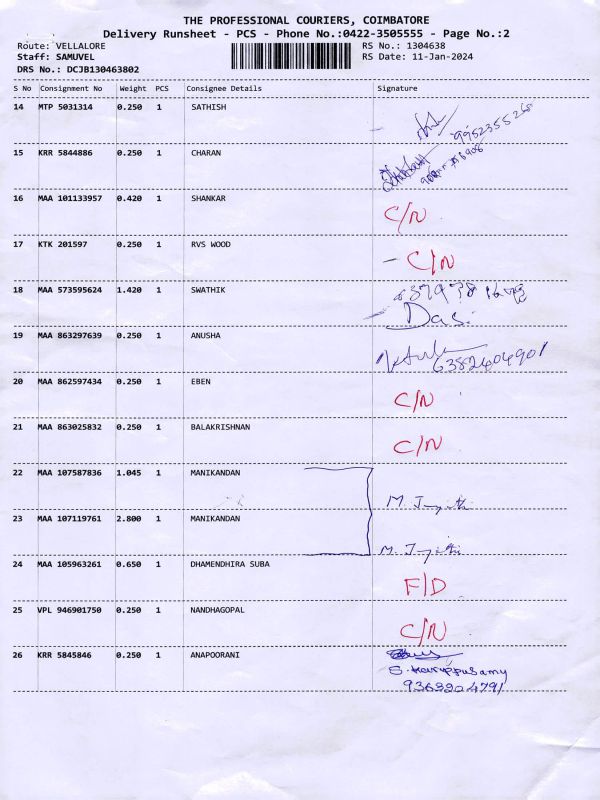 THE PROFESSIONAL COURIERS, COIMBATORE
Delivery Runsheet - PCS - Phone No.:0422-3505555 - Page No.:2
Route: VELLALORE RS No.: 1304638
Staff: SAMUVEL RS Date: 11-Jan-2024
DRS No.: DCJB130463802
S No Consignment No Weight PCS Consignee Details Signature
14 MTP 5031314 0.250 1 SATHISH
9952355268
15 KRR 5844886 0.250 1 CHARAN
16 MAA 101133957 0.420 1 SHANKAR
C/N
17 KTK 201597 0.250 1 RVS WOOD
C/N
18 MAA 573595624 1.420 1 SWATHIK
Das.
19 MAA 863297639 0.250 1 ANUSHA
6382404901
20 MAA 862597434 0.250 1 EBEN
C/N
21 MAA 863025832 0.250 1 BALAKRISHNAN
C/N
22 MAA 107587836 1.045 1 MANIKANDAN
M.
23 MAA 107119761 2.800 1 MANIKANDAN
M.
24 MAA 105963261 0.650 1 DHAMENDHIRA SUBA
F/D
25 VPL 946901750 0.250 1 NANDHAGOPAL
C/N
26 KRR 5845846 0.250 1 ANAPOORANI
S. Karuppusamy
9363204791